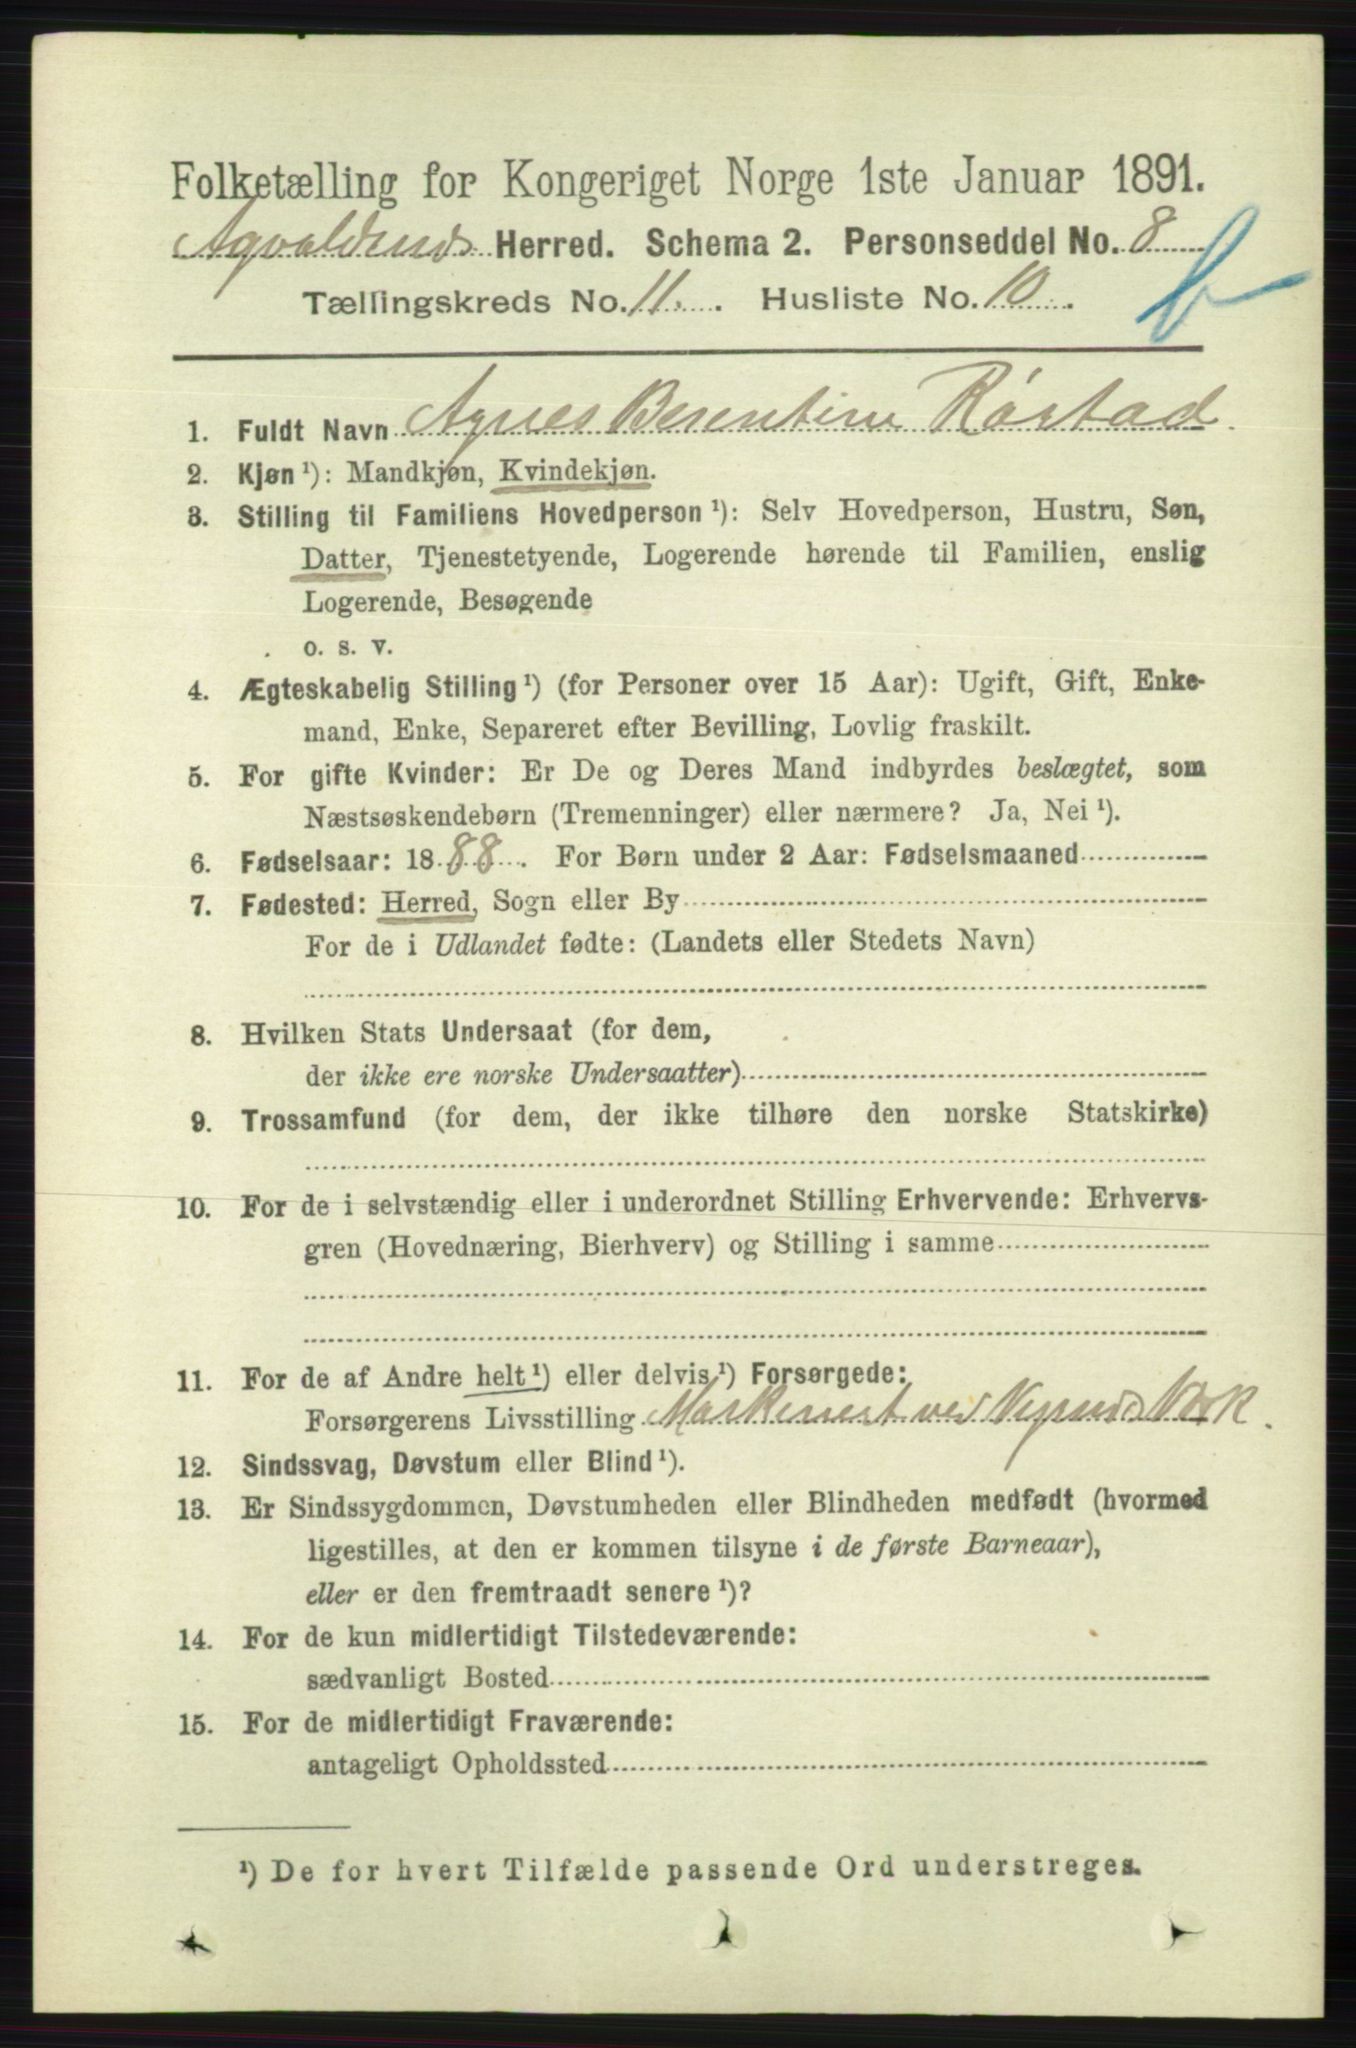 Folketælling for Kongeriget Norge 1ste Januar 1891.
Herred. Schema 2. Personseddel No. 8
Tællingskreds No. 11. Husliste No. 10.
b
1. Fuldt Navn Agnes Berentine Röstad.
2. Kjøn ¹): Mandkjøn, Kvindekjøn.
3. Stilling til Familiens Hovedperson ¹): Selv Hovedperson, Hustru, Søn,
Datter, Tjenestetyende, Logerende hørende til Familien, enslig
Logerende, Besøgende
o. s. v.
4. Ægteskabelig Stilling ¹) (for Personer over 15 Aar): Ugift, Gift, Enke-
mand, Enke, Separeret efter Bevilling, Lovlig fraskilt.
5. For gifte Kvinder: Er De og Deres Mand indbyrdes beslægtet, som
Næstsøskendebørn (Tremenninger) eller nærmere? Ja, Nei ¹).
6. Fødselsaar: 1888. For Børn under 2 Aar: Fødselsmaaned
7. Fødested: Herred, Sogn eller By
For de i Udlandet fødte: (Landets eller Stedets Navn)
8. Hvilken Stats Undersaat (for dem,
der ikke ere norske Undersaatter)
9. Trossamfund (for dem, der ikke tilhøre den norske Statskirke)
10. For de i selvstændig eller i underordnet Stilling Erhvervende: Erhvervs-
gren (Hovednæring, Bierhverv) og Stilling i samme
11. For de af Andre helt ¹) eller delvis ¹) Forsørgede:
Forsørgerens Livsstilling ved
12. Sindssvag, Døvstum eller Blind ¹).
13. Er Sindssygdommen, Døvstumheden eller Blindheden medfødt (hvormed
ligestilles, at den er kommen tilsyne i de første Barneaar),
eller er den fremtraadt senere ¹)?
14. For de kun midlertidigt Tilstedeværende:
sædvanligt Bosted
15. For de midlertidigt Fraværende:
antageligt Opholdssted
¹) De for hvert Tilfælde passende Ord understreges.